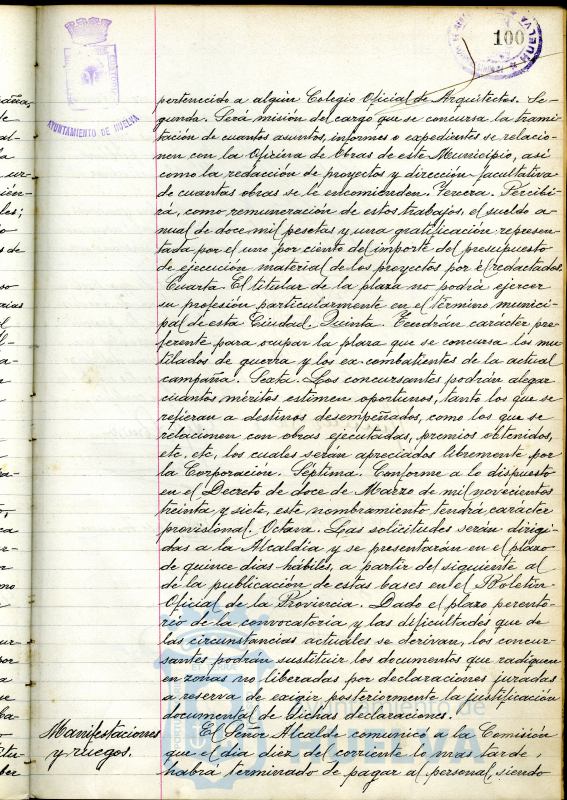 100
AYUNTAMIENTO DE HUELVA
pertenecido a algún Colegio Oficial de Arquitectos. Se-
gunda. Será misión del cargo que se concursa la trami-
tación de cuantos asuntos, informes o expedientes se relacio-
nen con la Oficina de Obras de este Municipio, así
como la redacción de proyectos y dirección facultativa
de cuantas obras se le encomienden. Tercera. Percibi-
rá, como remuneración de estos trabajos, el sueldo a-
nual de doce mil pesetas y una gratificación represen-
tada por el uno por ciento del importe del presupuesto
de ejecución material de los proyectos por él redactados.
Cuarta. El titular de la plaza no podrá ejercer
su profesión particularmente en el término munici-
pal de esta Ciudad. Quinta. Tendrán caracter pre-
ferente para ocupar la plaza que se concursa los mu-
tilados de guerra y los ex-combatientes de la actual
campaña. Sexta. Los concursantes podrán alegar
cuantos méritos estimen oportunos, tanto los que se
refieran a destinos desempeñados, como los que se
relacionen con obras ejecutadas, premios obtenidos,
etc, etc, los cuales serán apreciados libremente por
la Corporación. Séptima. Conforme a lo dispuesto
en el Decreto de doce de Marzo de mil novecientos
treinta y siete, este nombramiento tendrá carácter
provisional. Octava. Las solicitudes serán dirigi-
das a la Alcaldia y se presentarán en el plazo
de quince dias hábiles, a partir del siguiente al
de la publicación de estas bases en el Boletín
Oficial de la Provincia. Dado el plazo perento-
rio de la convocatoria y las dificultades que de
las circunstancias actuales se derivan, los concur-
santes podrán sustituir los documentos que radiquen
en zonas no liberadas por declaraciones juradas
a reserva de exigir posteriormente la justificación
documental de dichas declaraciones.
Manifestaciones
y ruegos.
El Señor Alcalde comunicó a la Comisión
que el dia diez del corriente lo mas tarde
habrá terminado de pagar al personal, siendo
Ayuntamiento de
HUELVA